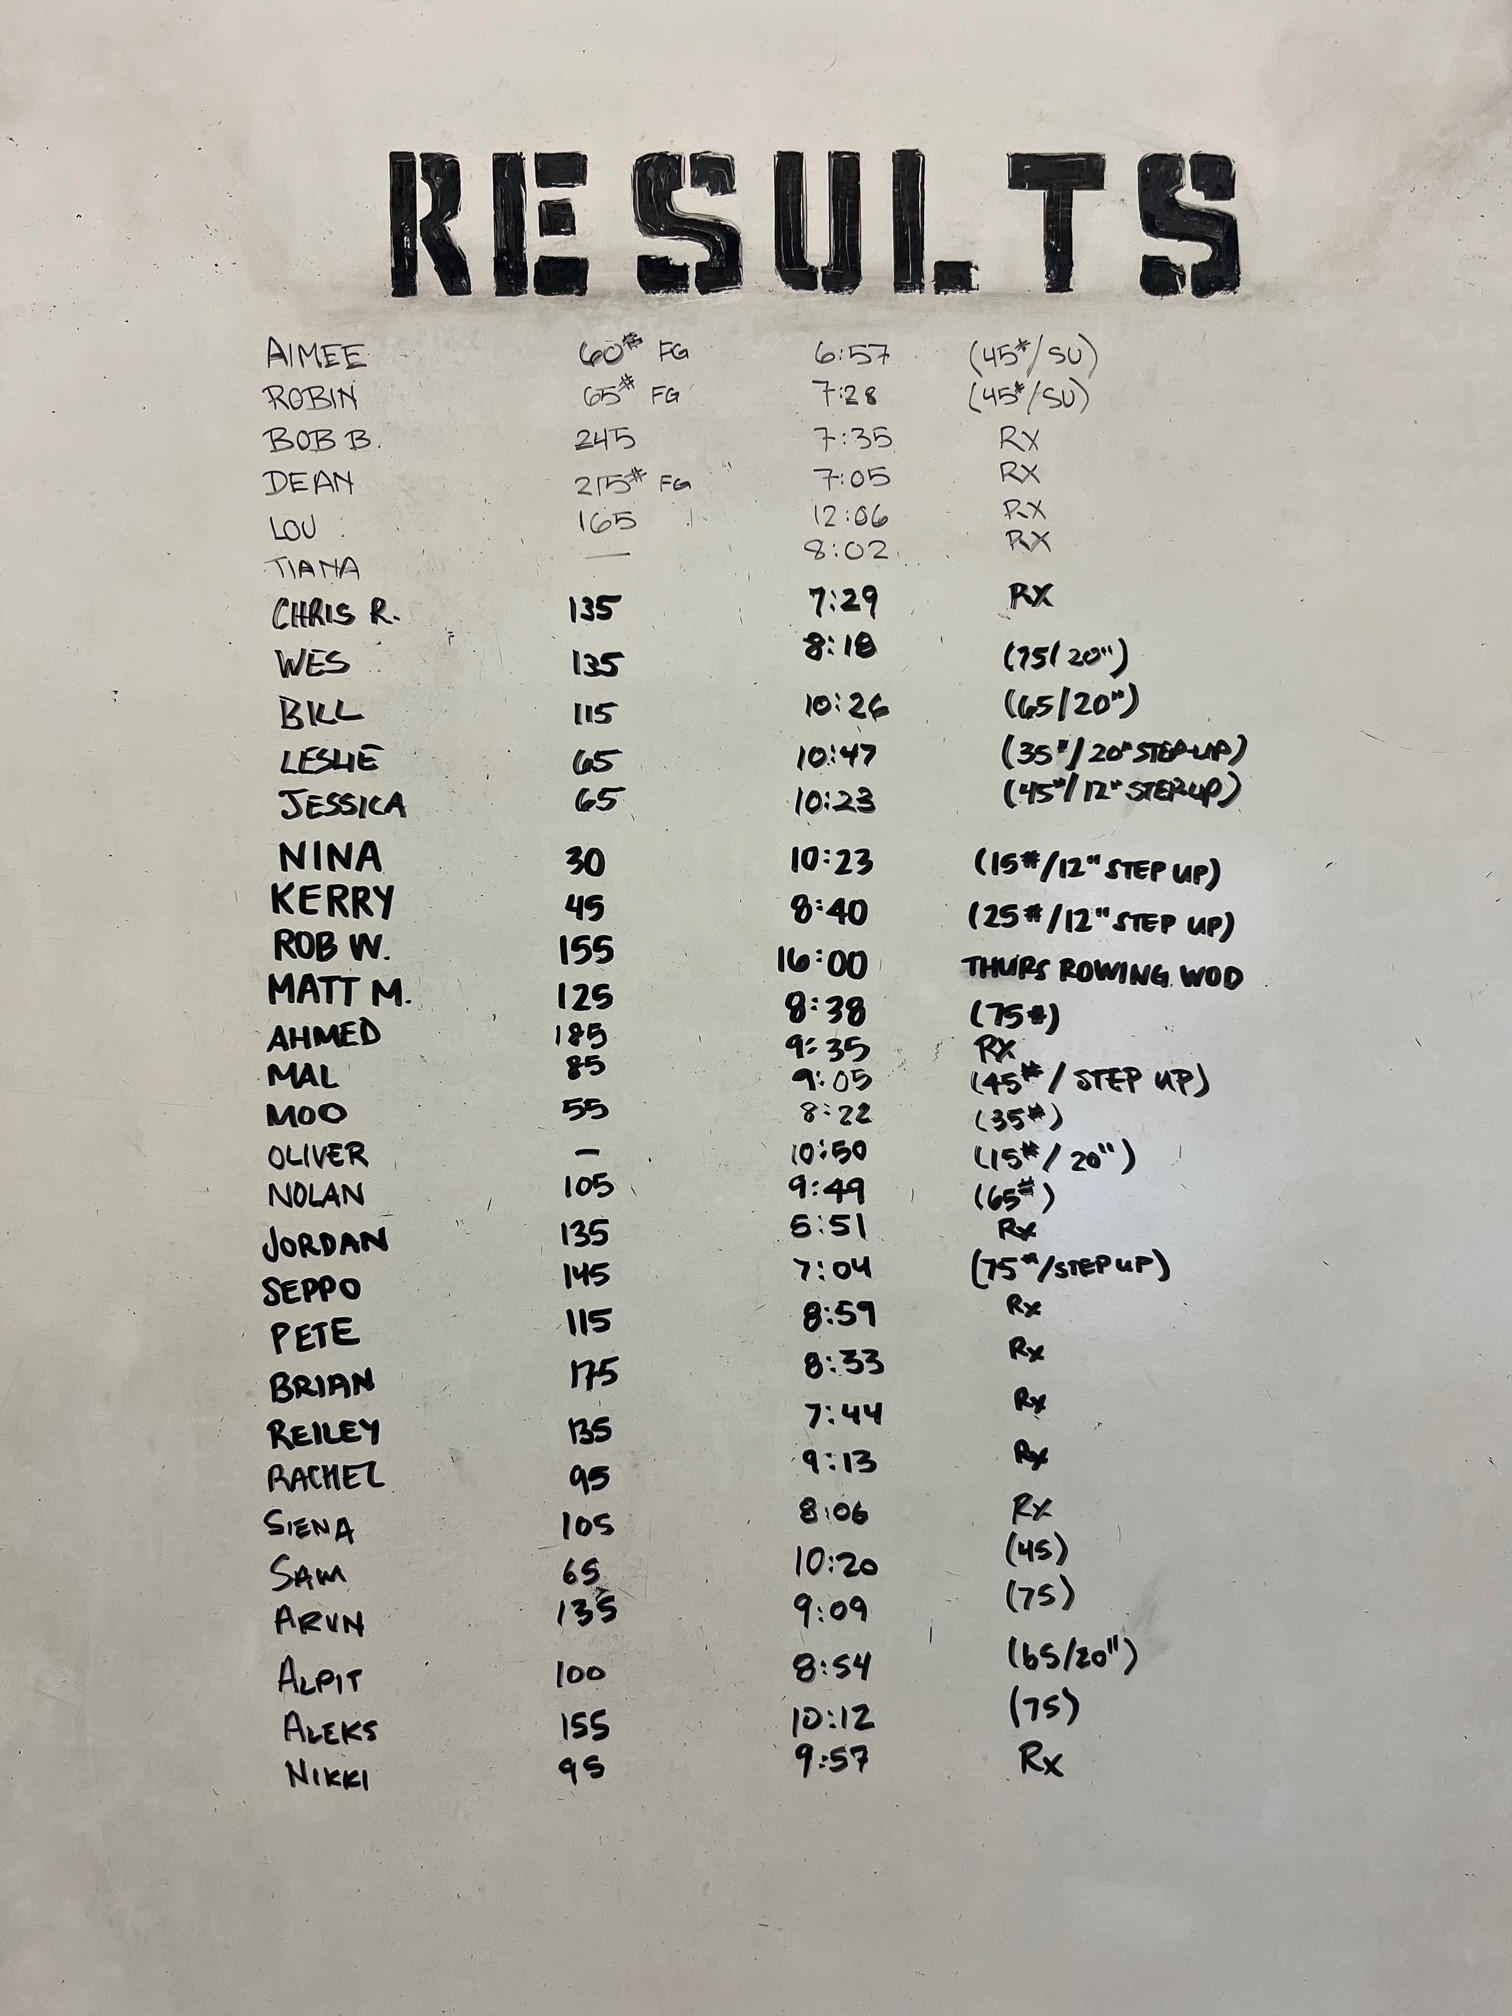 RESULTS
AIMEE 60# FG 6:57 (45#/SU)
ROBIN 65# FG 7:28 (45#/SU)
BOB B. 245 7:35 RX
DEAN 215# FG 7:05 RX
LOU 165 12:06 RX
TIANA — 8:02 RX
CHRIS R. 135 7:29 RX
WES 135 8:18 (75/20")
BILL 115 10:26 (65/20")
LESLIE 65 10:47 (35#/20" STEP-UP)
JESSICA 65 10:23 (45#/12" STEP-UP)
NINA 30 10:23 (15#/12" STEP UP)
KERRY 45 8:40 (25#/12" STEP UP)
ROB W. 155 16:00 THURS ROWING WOD
MATT M. 125 8:38 (75#)
AHMED 185 9:35 RX
MAL 85 9:05 (45#/ STEP UP)
MOO 55 8:22 (35#)
OLIVER — 10:50 (15#/20")
NOLAN 105 9:49 (65#)
JORDAN 135 5:51 Rx
SEPPO 145 7:04 (75#/STEP UP)
PETE 115 8:59 Rx
BRIAN 175 8:33 Rx
REILEY 135 7:44 Rx
RACHEL 95 9:13 Rx
SIENA 105 8:06 Rx
SAM 65 10:20 (45)
ARUN 135 9:09 (75)
ALPIT 100 8:54 (65/20")
ALEKS 155 10:12 (75)
NIKKI 95 9:57 Rx